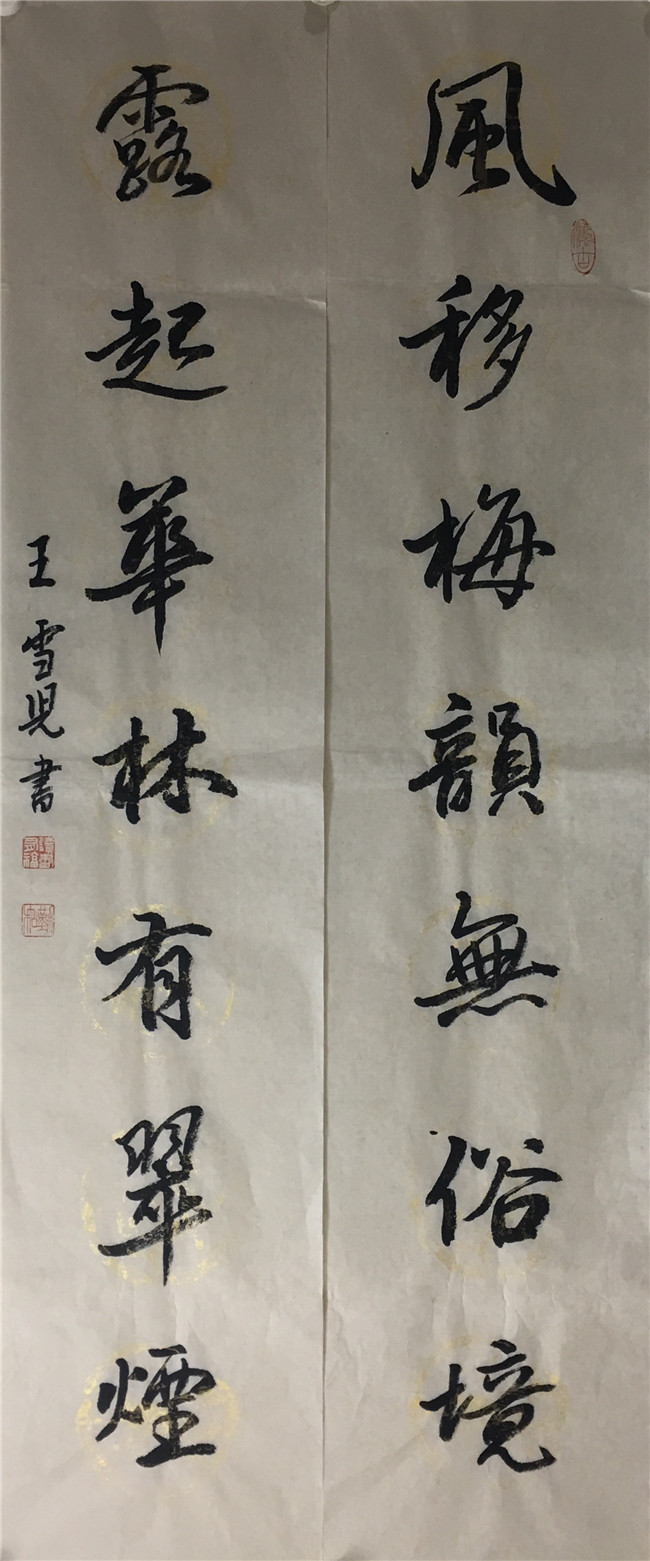 風移梅韻無俗境
露起華林有翠煙
王雪児書